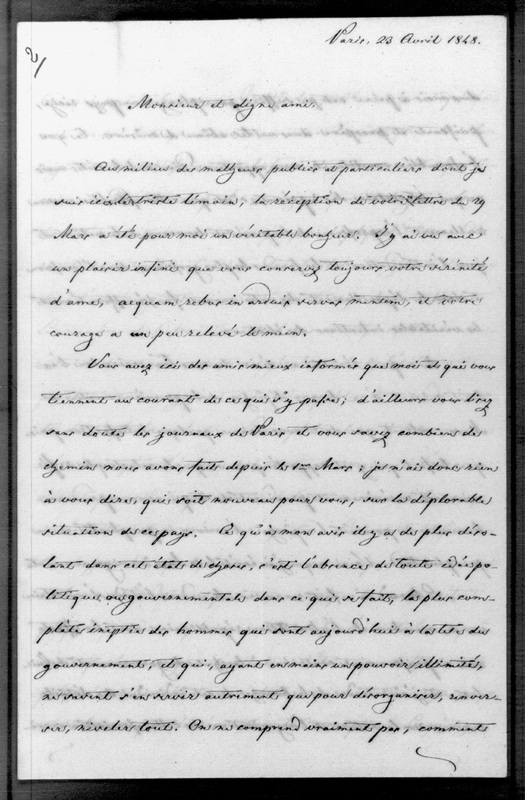 2/
Paris, 23 Avril 1848.
Monsieur et digne ami,
Au milieu des malheurs publics et particuliers dont je
suis ici le triste témoin, la réception de votre lettre du 29
Mars a été pour moi un véritable bonheur. J'y ai vu avec
un plaisir infini que vous conservez toujours votre sérénité
d'ame, aequam rebus in arduis servas mentem, et votre
courage a un peu relevé le mien.
Vous avez ici des amis mieux informés que moi et qui vous
tiennent au courant de ce qui s'y passe; d'ailleurs vous lisez
sans doute les journaux de Paris et vous savez combien de
chemin nous avons fait depuis le 1er Mars; je n'ai donc rien
à vous dire, qui soit nouveau pour vous, sur la déplorable
situation de ce pays. Ce qu'à mon avis il y a de plus déso-
lant dans cet état de choses, c'est l'absence de toute idée po-
litique ou gouvernementale dans ce qui se fait, la plus com-
plète ineptie des hommes qui sont aujourd'hui à la tête du
gouvernement, et qui, ayant en main un pouvoir illimité,
ne savent s'en servir autrement que pour désorganiser, renver-
ser, niveler tout. On ne comprend vraiment pas, comment